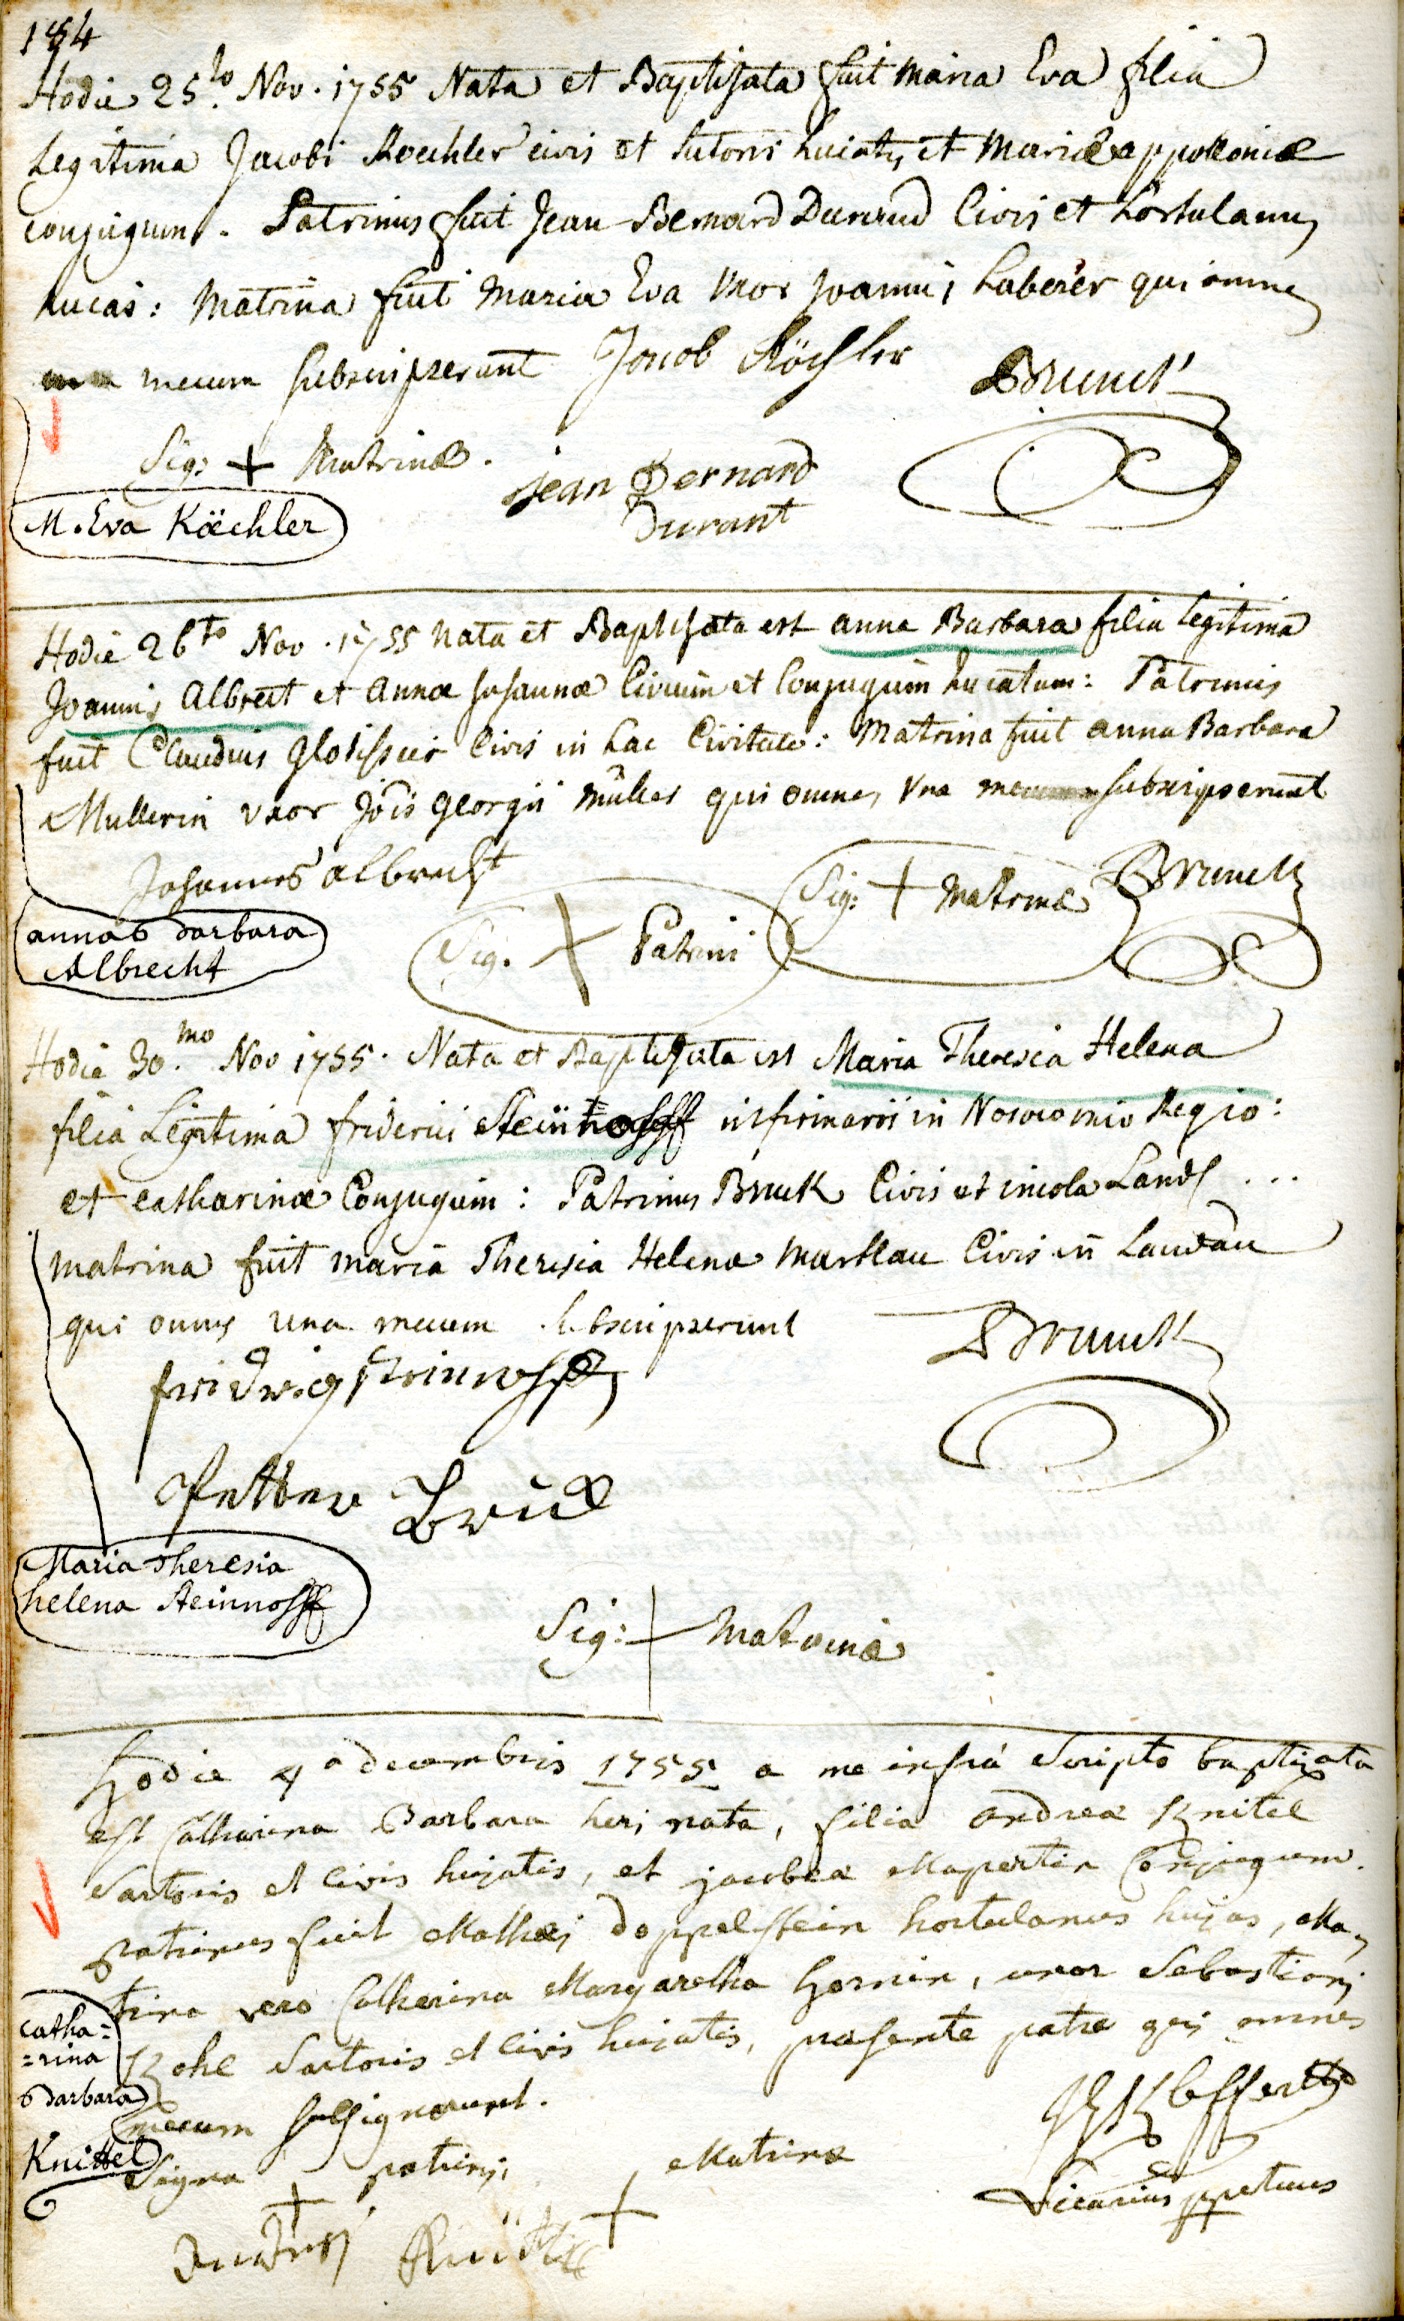 184
Hodie 25to Nov. 1755 Nata et Baptisata fuit Maria Eva filia
Legitima Jacobi Koechler civis et sutoris huiatis et Mariæ appolloniæ
conjugum. Patrinus fuit Jean Bernard Durand Civis et hortulanus
hucas: Matrina fuit Maria Eva uxor Joannis Haberer qui omnes
mecum subscripserunt Jacob Köchler Brunck
Sig: + Matrinæ.
jean Bernard
Durant
M. Eva Köechler
Hodie 26to Nov. 1755 nata et Baptisata est anna Barbara filia legitima
Joannis Albrect et Annæ Susannæ Civium et Conjugum huiatum: Patrinus
fuit Claudius Civis in hac Civitate: Matrina fuit anna Barbara
Mullerin uxor Jois Georgii Müller qui omnes una mecum subscripserunt
Johannes albrecht
Sig: + Matrinæ Brunck
Sig. + Patrini
anna Barbara
Albrecht
Hodie 30.mo Nov 1755. Nata et Baptisata est Maria Theresia Helena
filia Legitima friderici Steinhoff infirmarii in Nosocomio Regio:
et catharinæ Conjugum: Patrinus Bruck Civis et incola Land ...
matrina fuit maria Theresia Helena Civis in Landau
qui omnes una mecum subscripserunt Brunck
Sig: + Matrinæ
Maria Theresia
helena Steinnoff
Hodie 4a decembris 1755 a me infra Scripto baptizata
est Catharina Barbara heri nata, filia andreæ Knitel
Sartoris et Civis hujatis, et jacobeæ Mapertin Conjugum.
patrinus fuit Mathæj doppelstein hortulanus hujas, Ma-
trina vero Catherina Margaretha Hornin, uxor Sebastiani
Kohl Sartoris et Civis hujatis, præsente patre qui omnes
mecum subsignarunt.
Signa + patrini + Matrinæ
Vicarius ppetuus
catha=
=rina
Barbara
Knittel